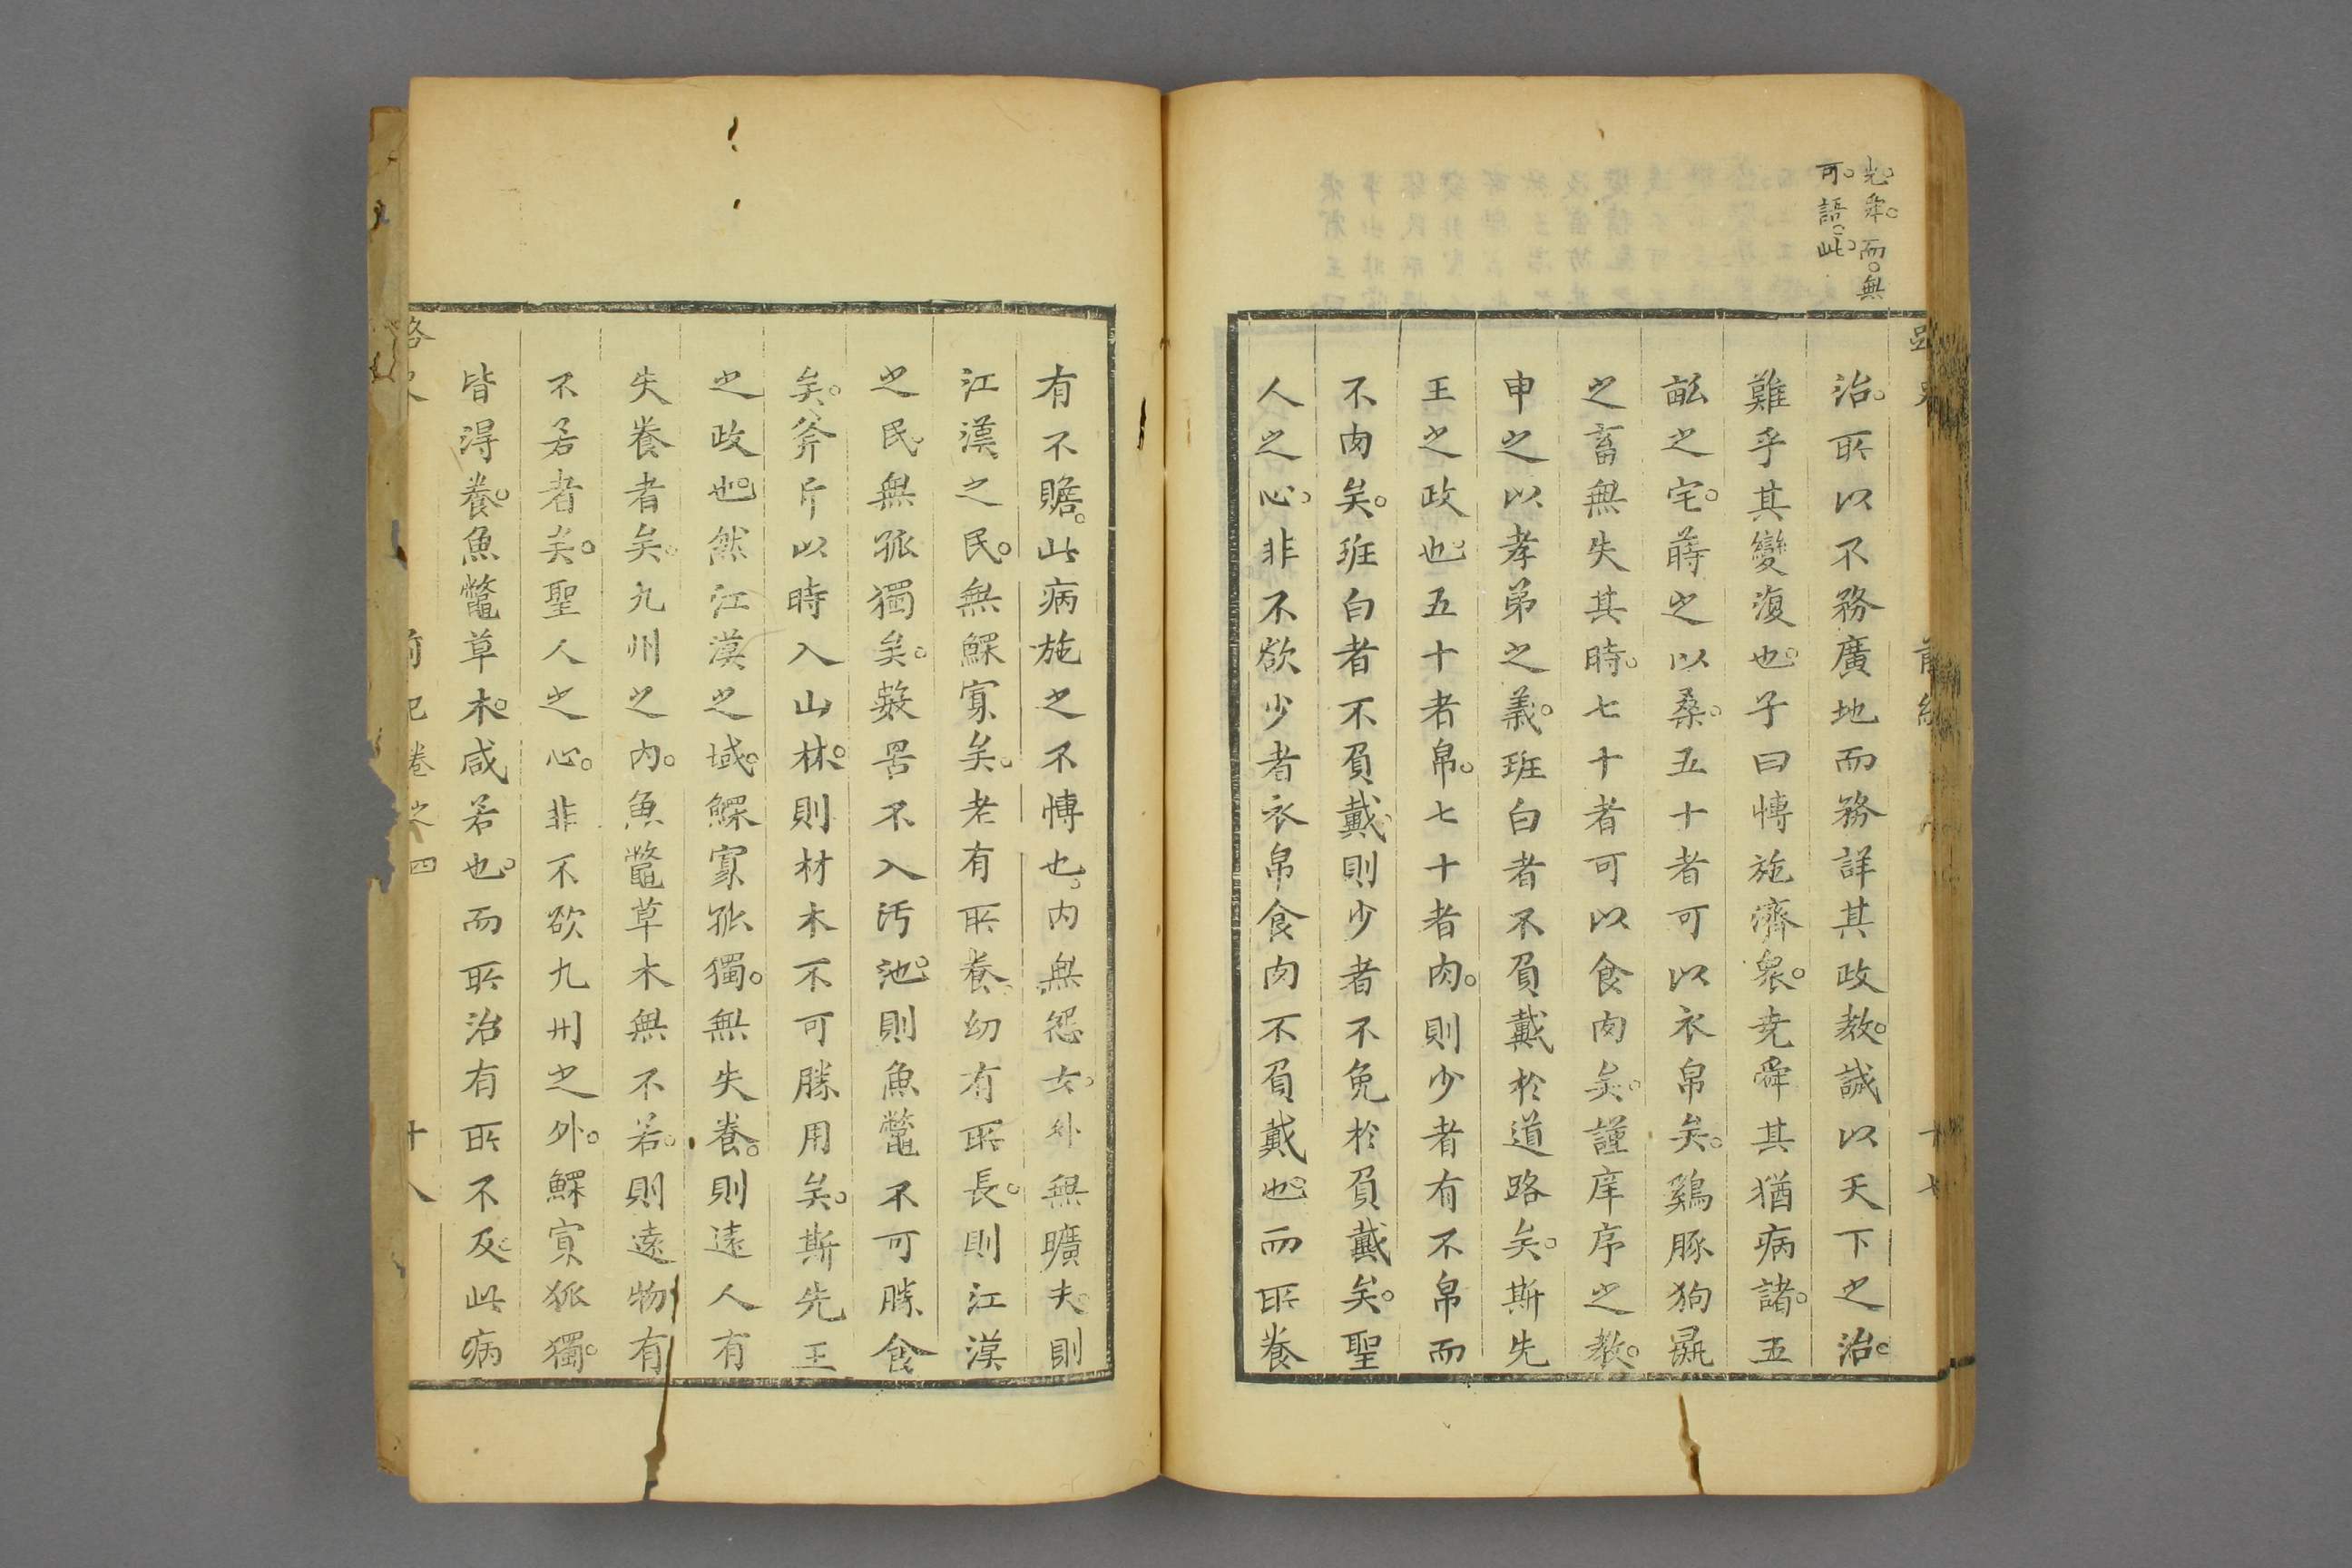 堯舜而無
可語此
治所以不務廣地而務詳其政教誠以天下之治
難乎其變復也子曰博施濟衆堯舜其猶病諸五
畝之宅蒔之以桑五十者可以衣帛矣鷄豚狗彘
之畜無失其時七十者可以食肉矣謹庠序之教
申之以孝弟之義班白者不負戴於道路矣斯先
王之政也五十者帛七十者肉則少者有不帛而
不肉矣班白者不負戴則少者不免於負戴矣聖
人之心非不欲少者衣帛食肉不負戴也而所養
有不贍此病施之不博也内無怨女外無曠夫則
江漢之民無鰥寡矣老有所養幼有所長則江漢
之民無孤獨矣數罟不入汚池則魚鼈不可勝食
矣斧斤以時入山林則材木不可勝用矣斯先王
之政也然江漢之域鰥寡孤獨無失養則遠人有
失養者矣九州之内魚鼈草木無不若則遠物有
不若者矣聖人之心非不欲九州之外鰥寡孤獨
皆得養魚鼈草木咸若也而所治有所不及此病
前紀卷之四 十八